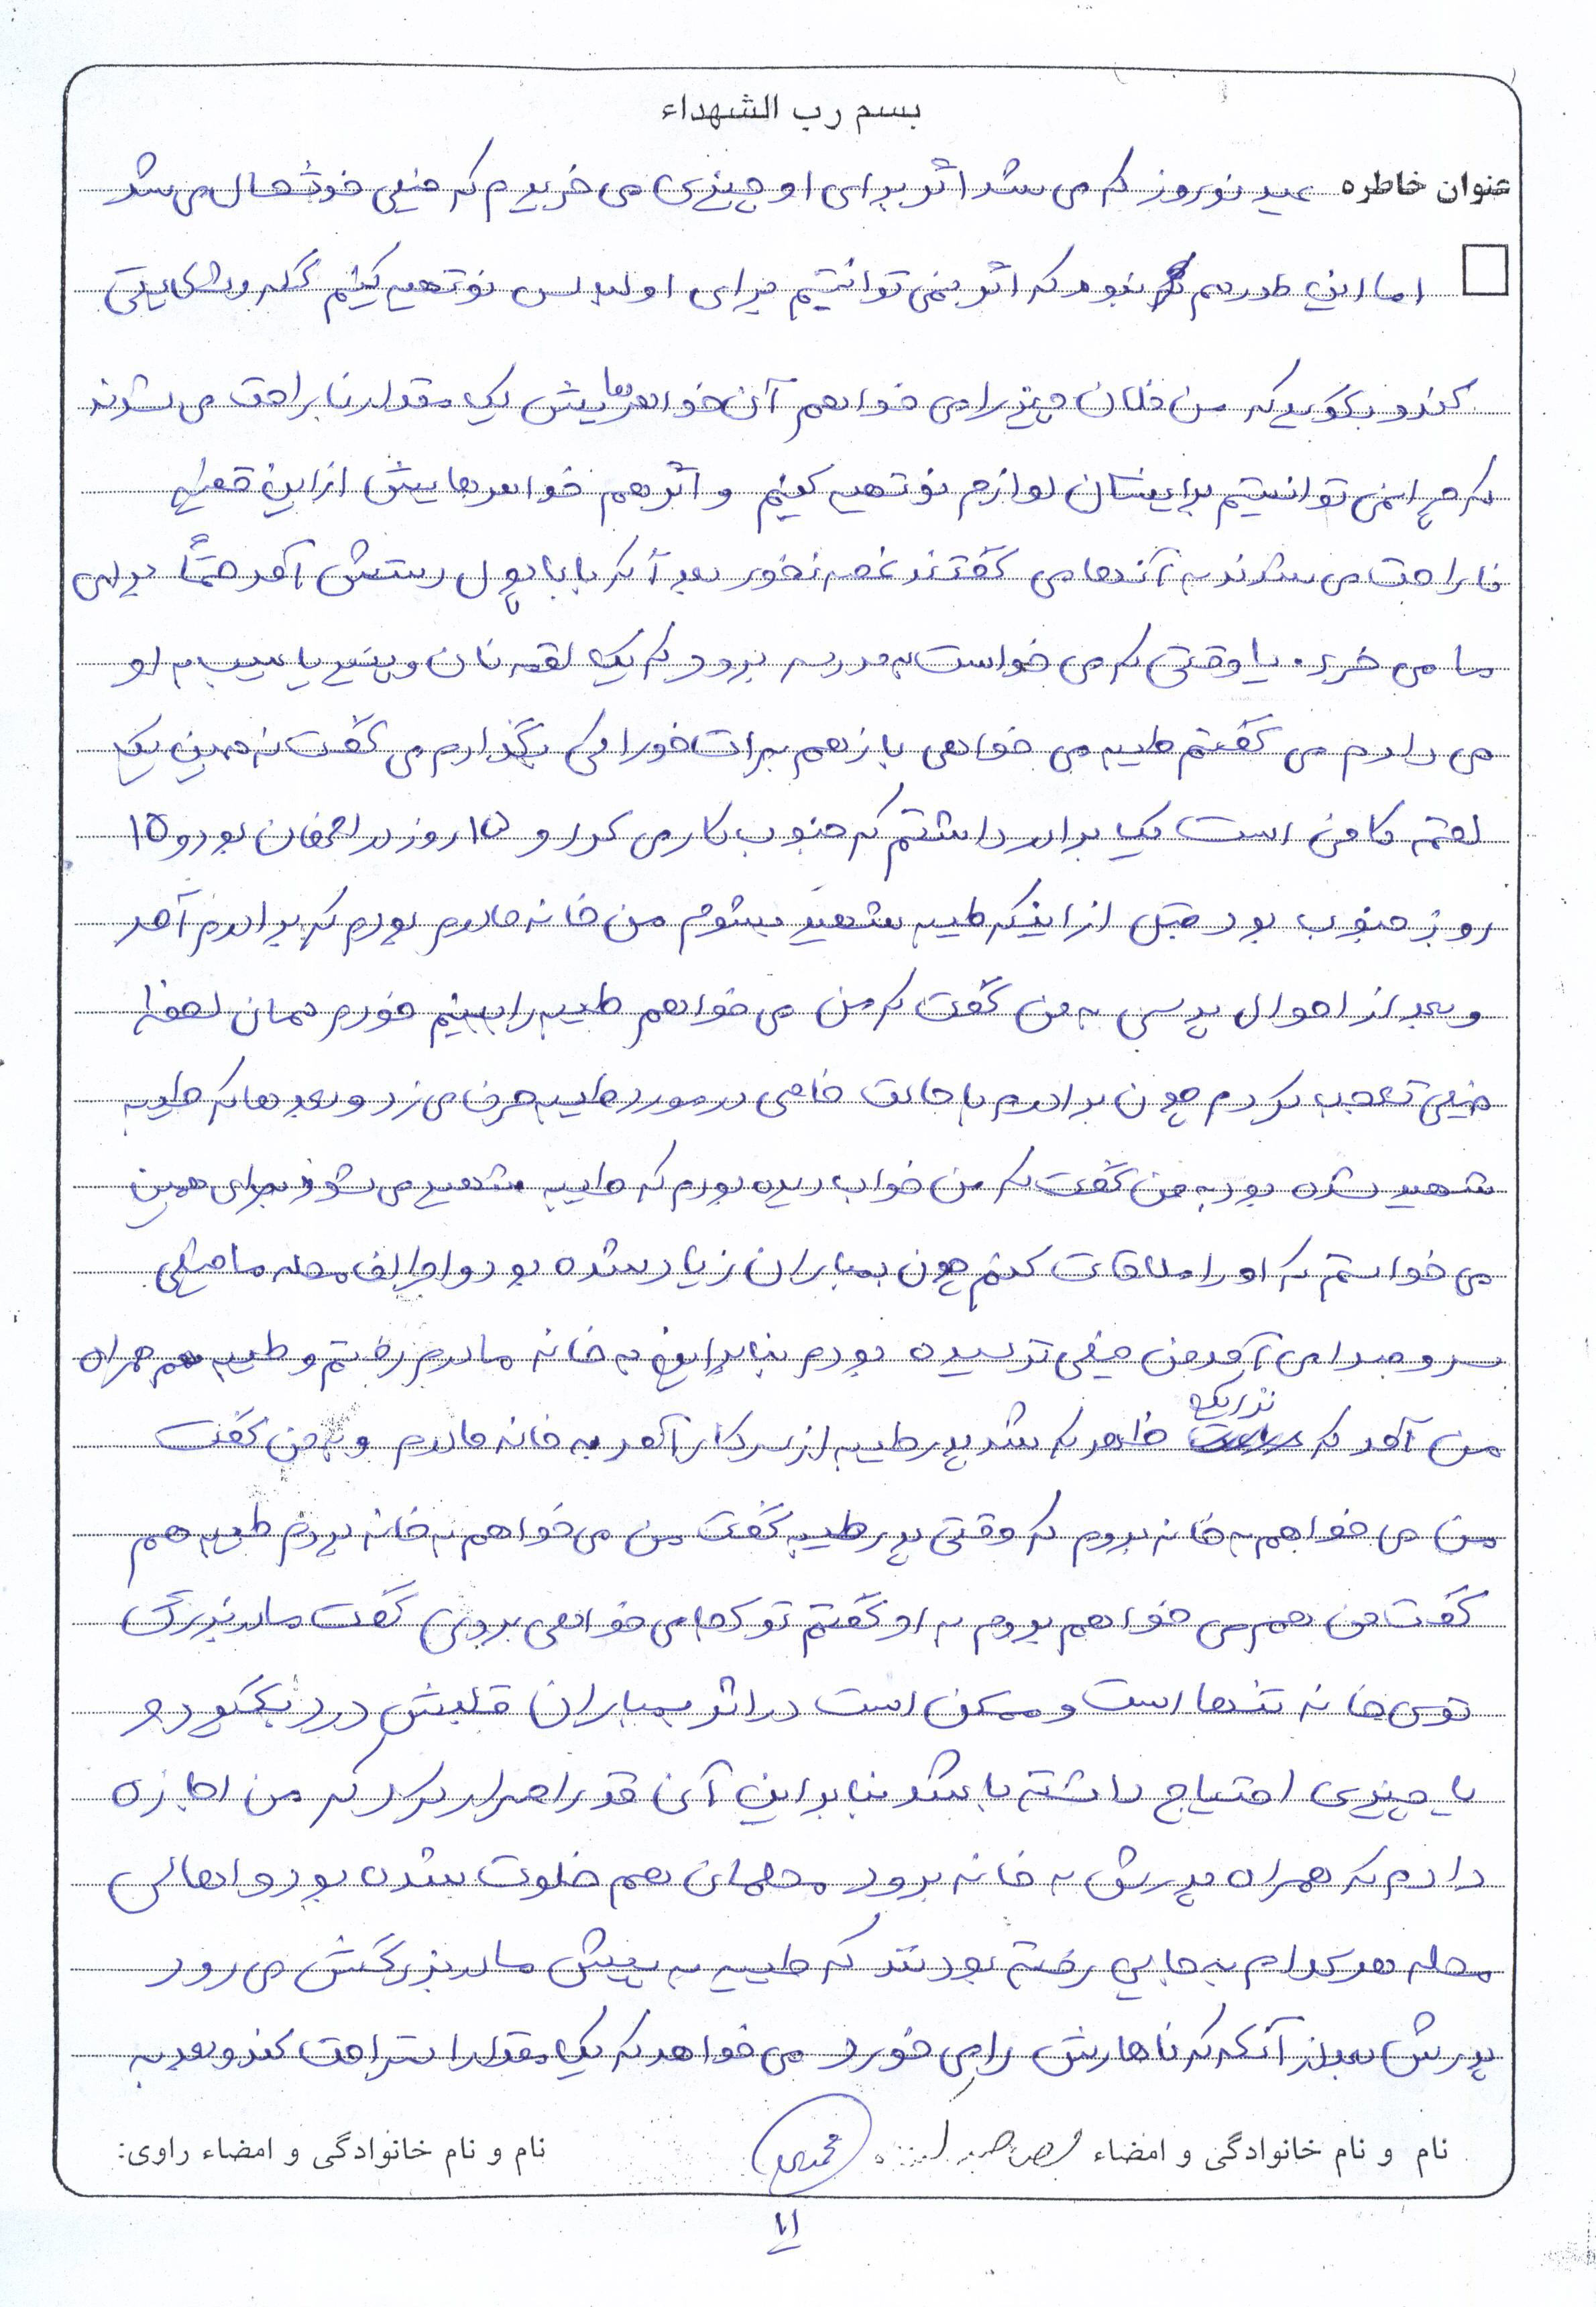 بسم رب الشهداء
عنوان خاطره عید نوروز که می شد اگر برای او چیزی می خریدم که خیلی خوشحال می شد
اما این طور هم نبود که اگر نمی توانستیم برای او لباس نو تهیه کنیم گله و شکایتی
کند و بگوید که من فلان چیز را می خواهم آن خواهرهایش یک مقدار ناراحت می شدند
که چرا نمی توانستیم برایشان لوازم نو تهیه کنیم و اگر هم خواهرهایش از این قضیه
ناراحت می شدند به آنها می گفتند غصه نخور بعد آ که بابا پول دستش آمد حتماً برای
ما می خرد. یا وقتی که می خواست به مدرسه برود که یک لقمه نان و پنیر یا سیب به او
می دادم می گفتم طیبه می خواهی بازهم برات خوراکی بگذارم می گفت نه همین یک
لقمه کافی است یک برادر داشتم که جنوب کار می کرد و ۱۵ روز در اصفهان بود و ۱۵
روز جنوب بود قبل از اینکه طیبه شهید بشوم من خانه مادرم بودم که برادرم آمد
و بعد از احوال پرسی به من گفت که من می خواهم طیبه را ببینم خودم همان لحظه
خیلی تعجب کردم چون برادرم با حالت خاصی در مورد طیبه حرف می زد و بعدها که طیبه
شهید شده بود به من گفت که من خواب دیده بودم که طیبه شهید می شود و برای همین
می خواستم که او را ملاقات کنم چون بمباران زیاد شده بود و اطراف محله ما خیلی
سر و صدا می آمد من خیلی ترسیده بودم بنابراین به خانه مادرم رفتم و طیبه هم همراه
من آمد که نزدیک ظهر که شد پدر طیبه از سر کار آمد به خانه مادرم و به من گفت
من می خواهم به خانه بروم که وقتی پدر طیبه گفت من می خواهم به خانه بروم طیبه هم
گفت من هم می خواهم بروم به او گفتم تو کجا می خواهی بروی گفت مادربزرگ
توی خانه تنها است و ممکن است در اثر بمباران قلبش درد بگیرد و
یا چیزی احتیاج داشته باشد بنابراین آن قدر اصرار کرد که من اجازه
دادم که همراه پدرش به خانه برود محلمان هم خلوت شده بود و اهالی
محله هر کدام به جایی رفته بودند که طیبه به پیش مادربزرگش می رود
پدرش بعد از آنکه که ناهارش را می خورد می خواهد که یک مقدار استراحت کند و بعد به
نام و نام خانوادگی و امضاء
نام و نام خانوادگی و امضاء راوی: